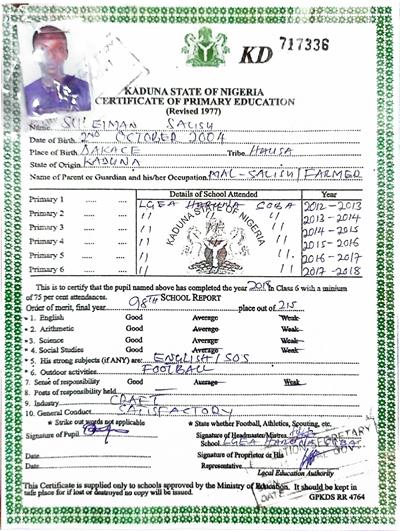 KD 717336
KADUNA STATE OF NIGERIA
CERTIFICATE OF PRIMARY EDUCATION
(Revised 1977)
Name. SULEIMAN SALISU
Date of Birth. 2ND OCTOBER 2004
Place of Birth. Tribe. HAUSA
State of Origin. KADUNA
Name of Parent or Guardian and his/her Occupation. MAL-SALISU/FARMER
Details of School Attended Year
Primary 1 ..... ..... LGEA HARUNA 2012-2013
Primary 2 ..... ..... " " 2013-2014
Primary 3 ..... ..... " " 2014-2015
Primary 4 ..... ..... " " 2015-2016
Primary 5 ..... ..... " " 2016-2017
Primary 6 ..... ..... " " 2017-2018
KADUNA STATE OF NIGERIA
This is to certify that the pupil named above has completed the year 2018 in Class 6 with a minium
of 75 per cent attendances.
SCHOOL REPORT
Order of merit, final year. 98TH place out of 215
* 1. English Good Average Weak
* 2. Arithmetic Good Average Weak
* 3. Science Good Average Weak
* 4. Social Studies Good Average Weak
* 5. His strong subjects (if ANY) are: ENGLISH/SOS
* 6. Outdoor activities. FOOTBALL
7. Sense of responsibility Good Average Weak
8. Posts of responsibility held
9. Industry CRAFT
10. General Conduct SATISFACTORY
* Strike out words not applicable * State whether Football, Athletics, Spouting, etc.
Signature of Pupil Signature of Headmaster/Mistress
School LGEA HARUNA
Date Signature of Proprietor or His
Date Representative.
Local Education Authority
This Certificate is supplied only to schools approved by the Ministry of Education. It should be kept in
safe place for if lost or destroyed no copy will be issued. GPKDS RR 4764